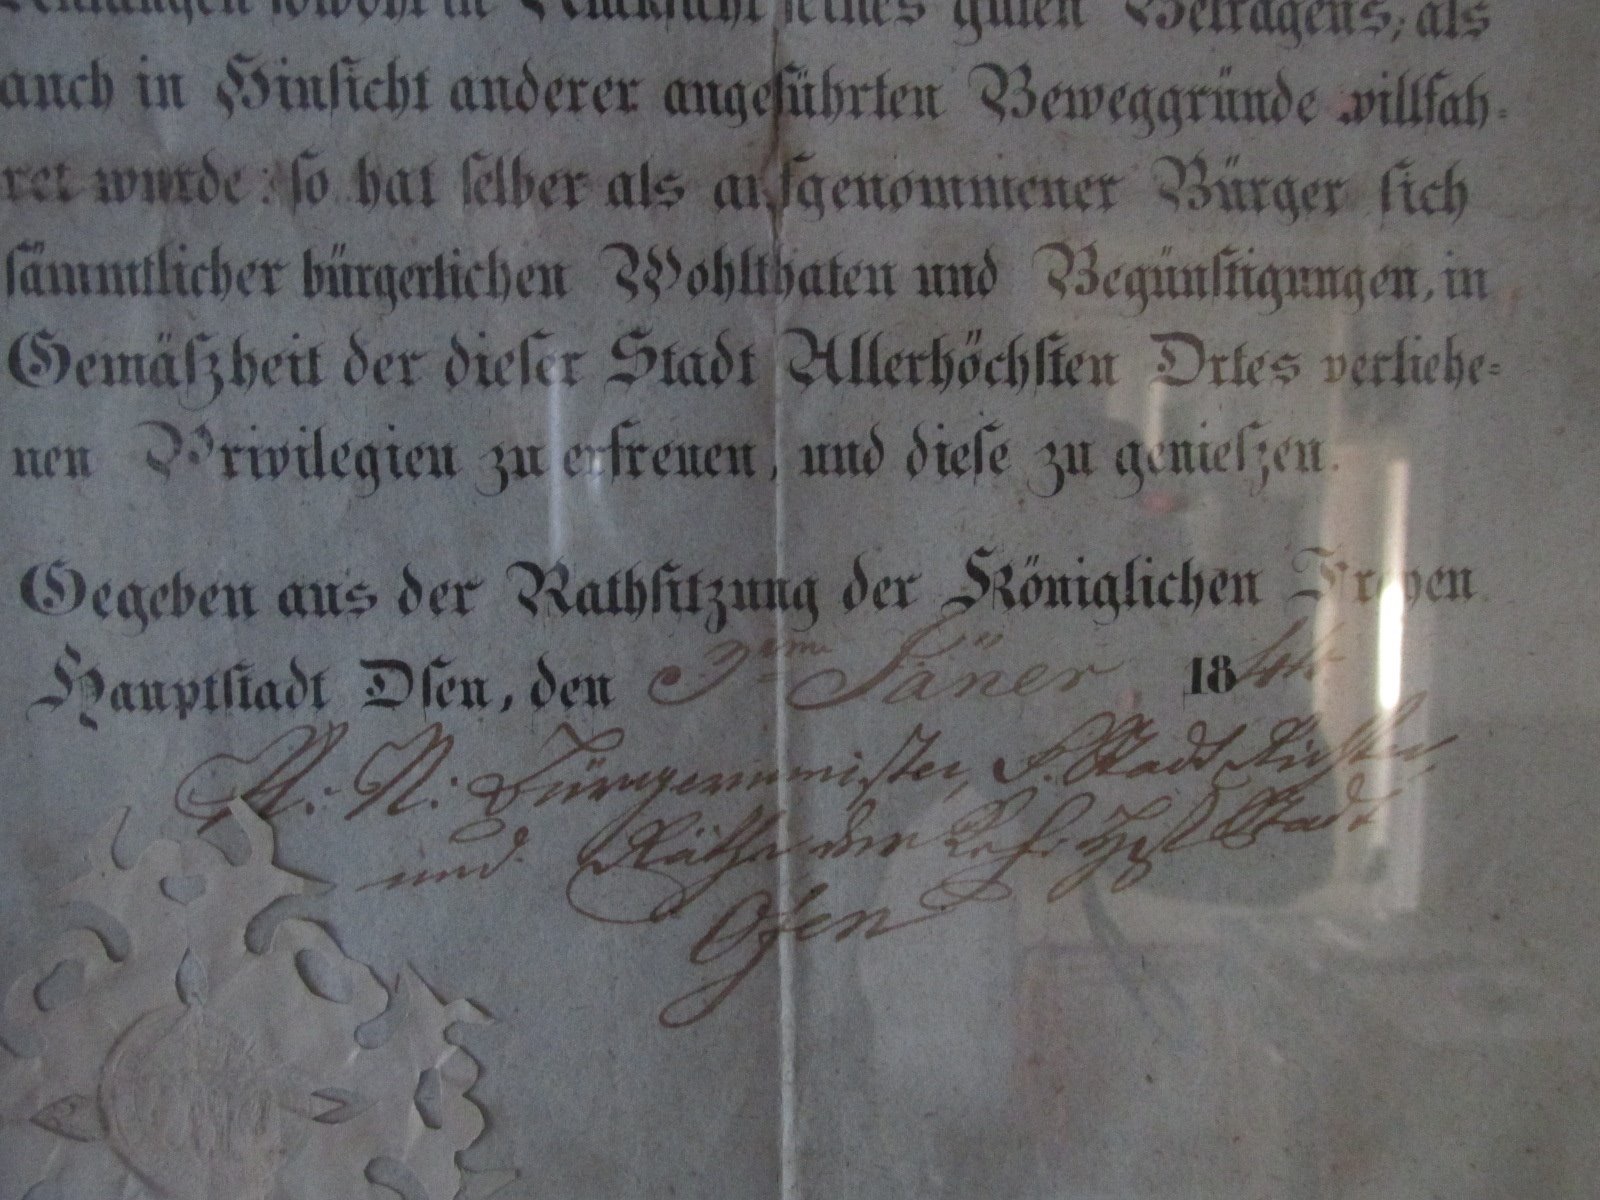 sowohl in Rücksicht seines guten Betragens, als
auch in Hinsicht anderer angeführten Beweggründe willfah-
ret wurde: so hat selber als aufgenommener Bürger sich
sämmtlicher bürgerlichen Wohlthaten und Begünstigungen, in
Gemäßheit der dieser Stadt Allerhöchsten Ortes verliehe-
nen Privilegien zu erfreuen, und diese zu genießen.
Gegeben aus der Rathsitzung der Königlichen Freyen
Hauptstadt Ofen, den 3 Jäner 1844
N: N: Bürgermeister, Stadt Richter,
und Räthe der Stadt
Ofen